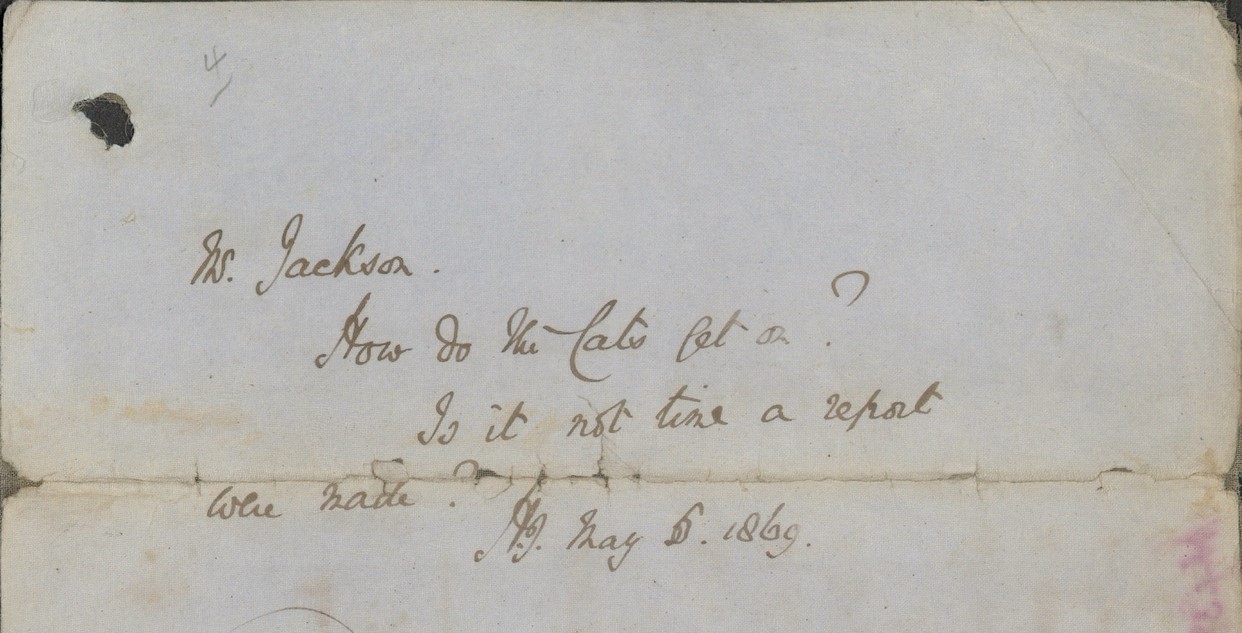 4
Mr. Jackson.
How do the Cats get on?
Is it not time a report
were made?
May 5. 1869.